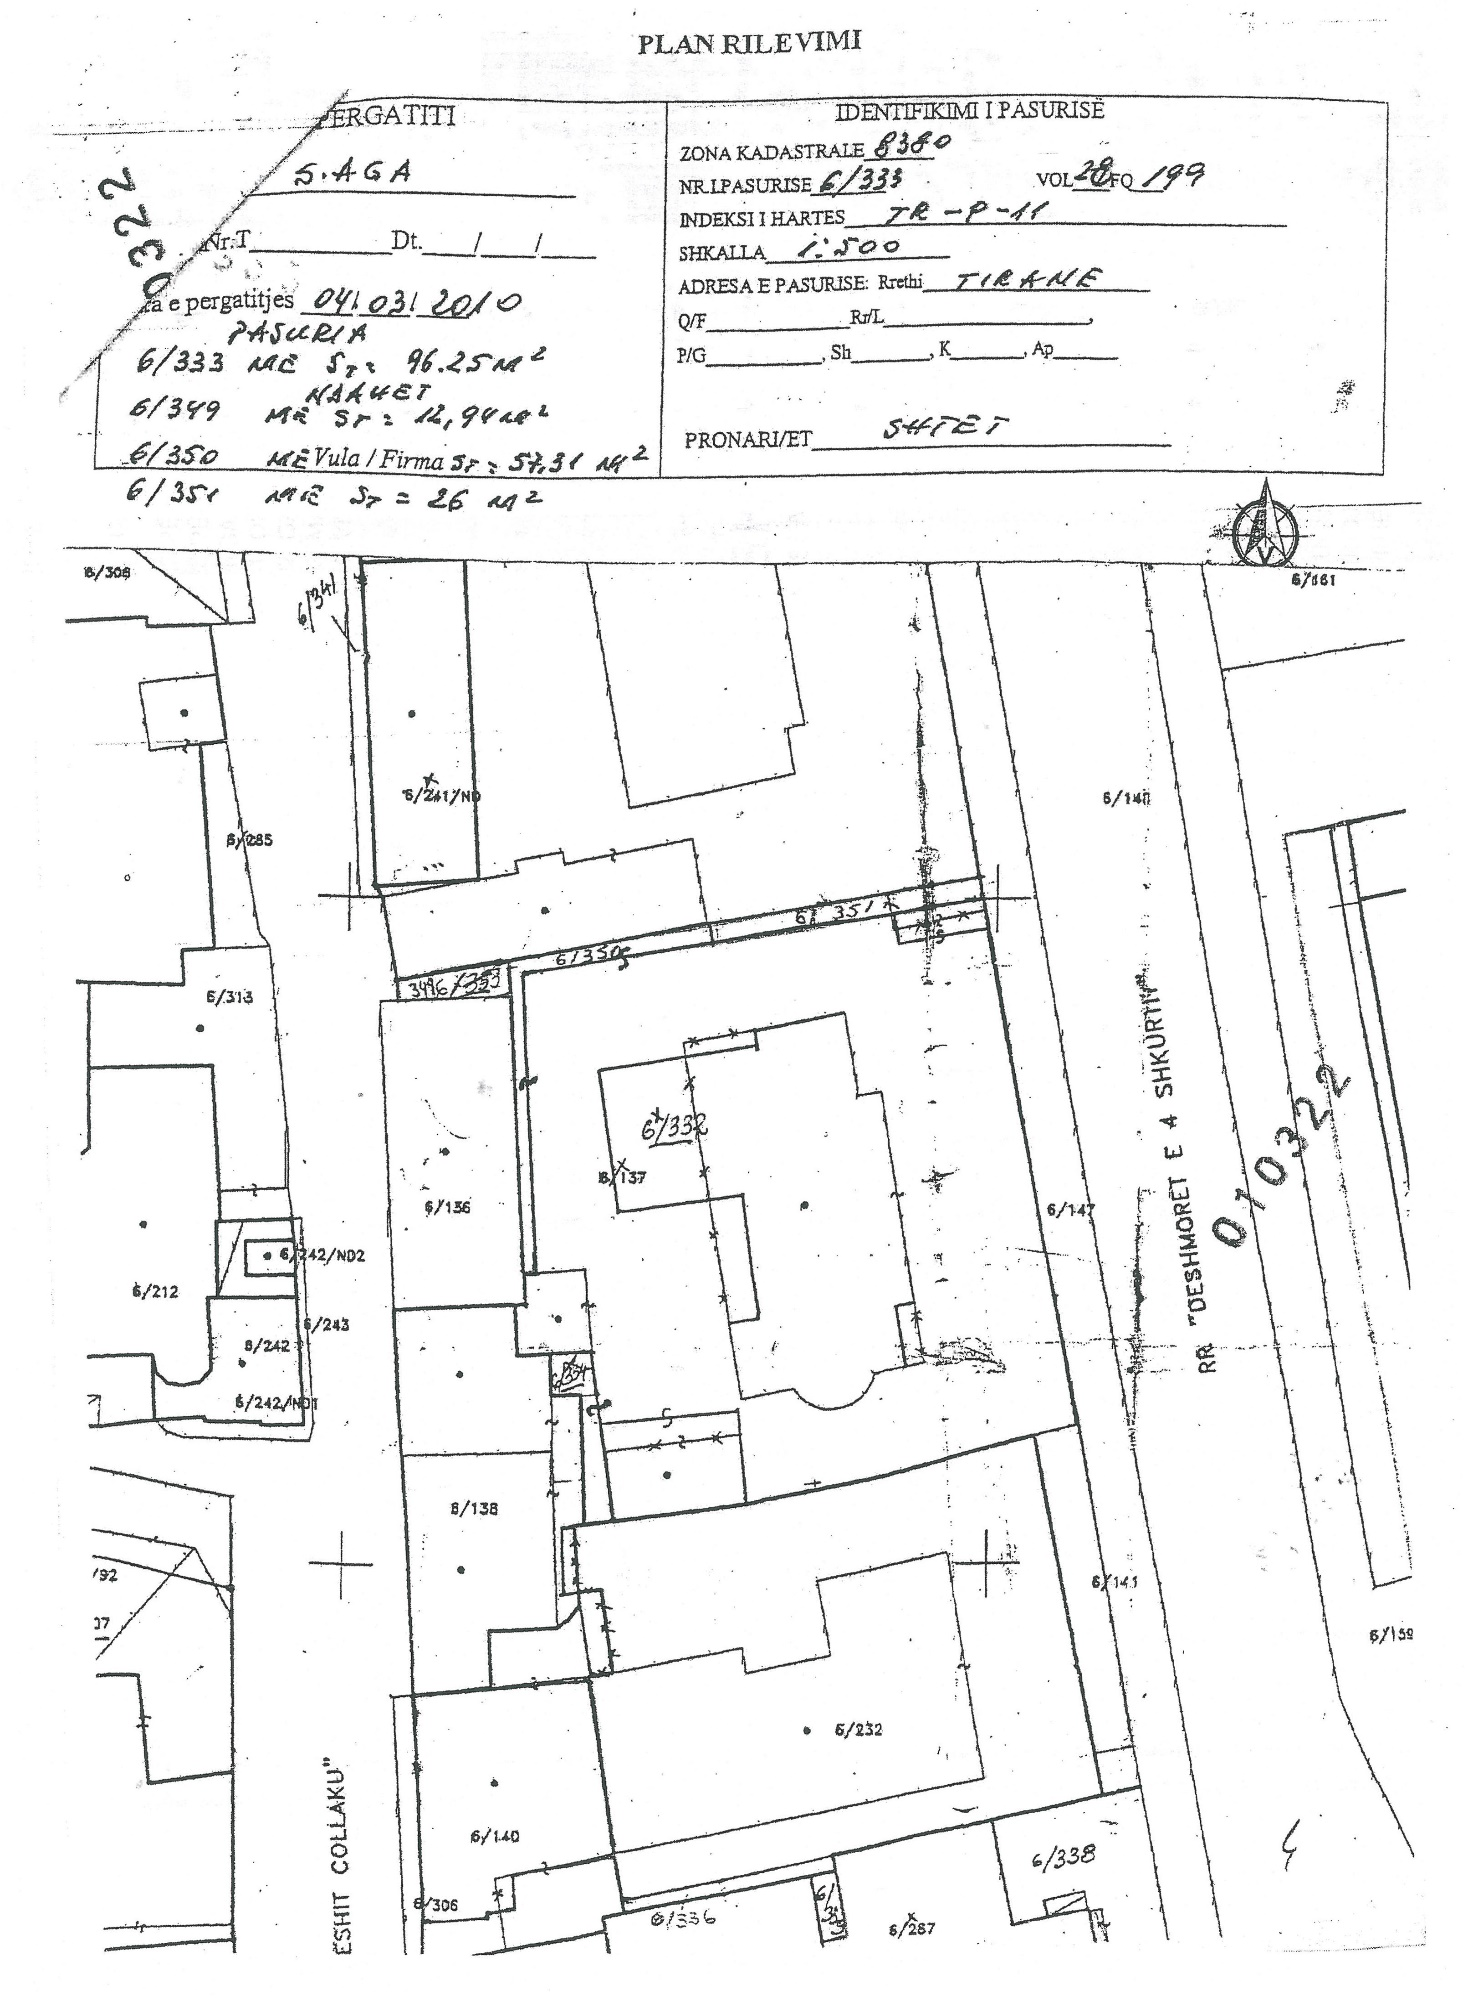 PLAN RILEVIMI
PERGATITI
S.AGA
Nr.T Dt. / /
e pergatitjes 04/03/2010
PASURIA
6/333 ME ST= 96.25 M²
6/349 ME ST = 12,94 M²
6/350 ME Vula / Firma ST = 57,31 M²
6/351 ME ST = 26 M²
IDENTIFIKIMI I PASURISË
ZONA KADASTRALE 8380
NR.I.PASURISE 6/333 VOL 28 FQ 199
INDEKSI I HARTES TR-P-11
SHKALLA 1:500
ADRESA E PASURISE: Rrethi TIRANE
Q/F Rr/L ,
P/G , Sh , K , Ap
PRONARI/ET SHTET
0322
V
6/308
6/341
6/161
6/241/ND
6/140
6/285
6/351
6/350
6/313
6/332
6/137
6/136
6/147
RR "DESHMORET E 4 SHKURTIT"
010322
6/242/ND2
6/212
6/243
6/242
6/242/ND1
6/334
6/138
/92
37
6/141
6/159
6/232
6/140
ESHIT COLLAKU"
6/306
6/336
6/287
6/338